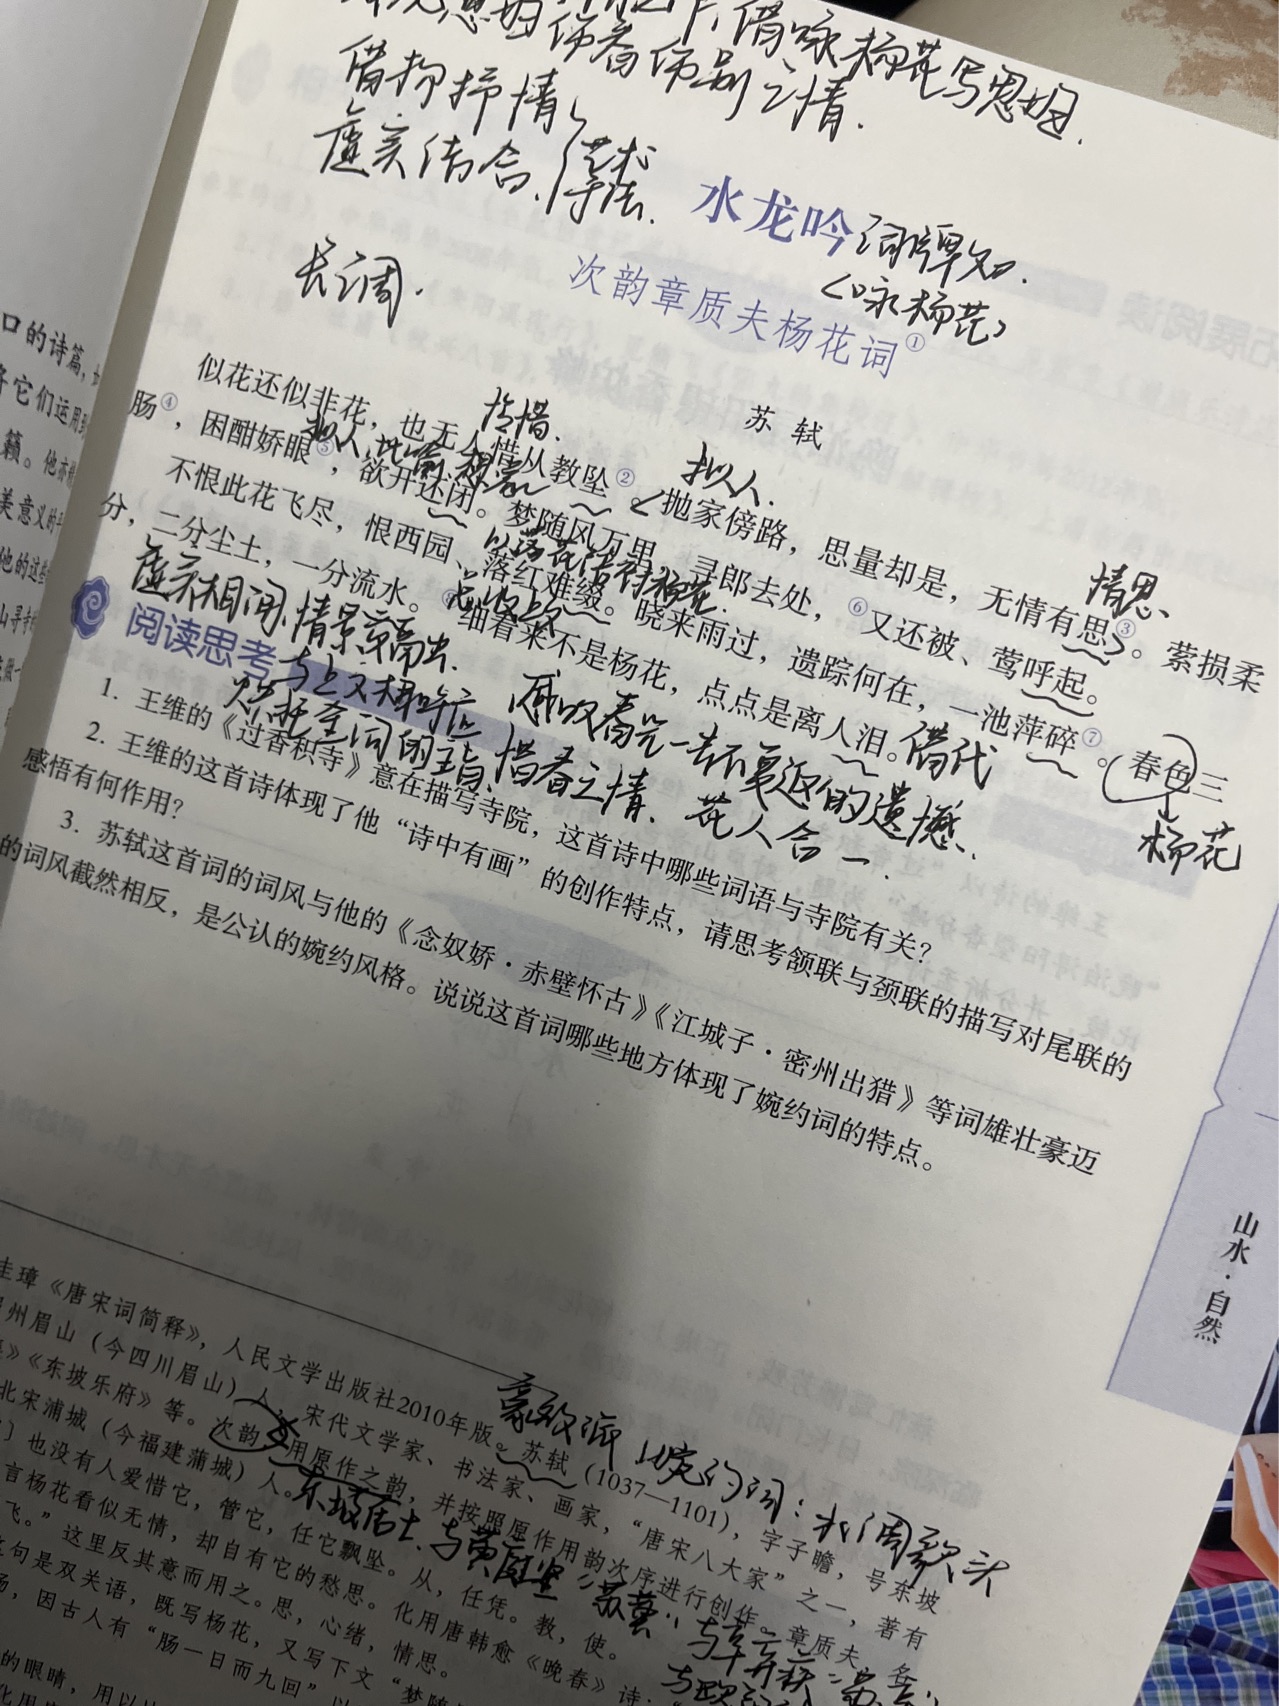 借咏杨花写思妇.
伤春伤别之情.
借物抒情
虚实结合、
艺术手法.
水龙吟 词牌名.
〈咏杨花〉
长调.
次韵章质夫杨花词①
苏 轼
似花还似非花，也无人惜从教坠②。抛家傍路，思量却是，无情有思③。萦损柔
怜惜.
拟人.
情思、
肠④，困酣娇眼⑤，欲开还闭。梦随风万里，寻郎去处，⑥又还被、莺呼起。
拟人.
不恨此花飞尽，恨西园、落红难缀。晓来雨过，遗踪何在，一池萍碎⑦。春色三
以落花陪衬杨花.
杨花
分，二分尘土，一分流水。细看来不是杨花，点点是离人泪。
借代
虚实相间、情景
与上文相呼应
感叹春光一去不复返的遗憾、
烘托全词的主旨、惜春之情、花人合一.
阅读思考
1. 王维的《过香积寺》意在描写寺院，这首诗中哪些词语与寺院有关？
2. 王维的这首诗体现了他“诗中有画”的创作特点，请思考颔联与颈联的描写对尾联的
感悟有何作用？
3. 苏轼这首词的词风与他的《念奴娇·赤壁怀古》《江城子·密州出猎》等词雄壮豪迈
的词风截然相反，是公认的婉约风格。说说这首词哪些地方体现了婉约词的特点。
山水·自然
口的诗篇，
将它们运用到
籁。他亦
美意义的
他的这些
圭璋《唐宋词简释》，人民文学出版社2010年版。苏轼（1037—1101），字子瞻，号东坡
豪放派
婉约词：水调歌头
州眉山（今四川眉山）人。宋代文学家、书法家、画家，“唐宋八大家”之一，著有
》《东坡乐府》等。次韵，用原作之韵，并按照原作用韵次序进行创作。章质夫，名
东坡居士、与黄庭坚“苏黄”；与辛弃疾
北宋浦城（今福建蒲城）人。
〕也没有人爱惜它，管它，任它飘坠。从，任凭。教，使。
言杨花看似无情，却自有它的愁思。化用唐韩愈《晚春》诗：
飞。”这里反其意而用之。思，心绪，情思。
句是双关语，既写杨花，又写下文“梦随
肠，因古人有“肠一日而九回”
的眼睛，用以